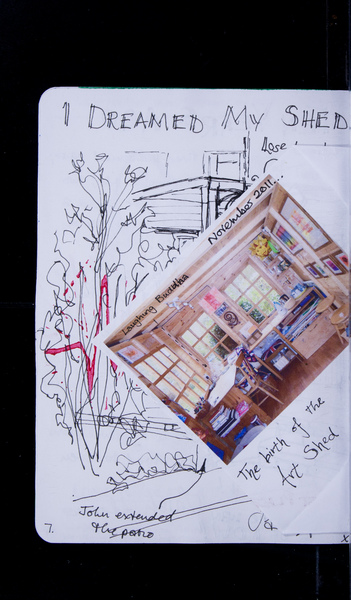 I DREAMED MY SHED
Rose
November 2011...
Laughing Buddha
The birth of the
Art Shed
John extended
the patio
7.